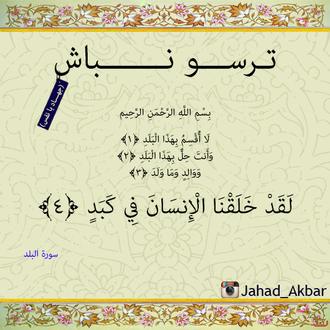 ترسو نباش
(جهاد با نفس)
بِسْمِ اللَّهِ الرَّحْمَنِ الرَّحِيمِ
لَا أُقْسِمُ بِهَذَا الْبَلَدِ ﴿١﴾
وَأَنتَ حِلٌّ بِهَذَا الْبَلَدِ ﴿٢﴾
وَوَالِدٍ وَمَا وَلَدَ ﴿٣﴾
لَقَدْ خَلَقْنَا الْإِنسَانَ فِي كَبَدٍ ﴿٤﴾
سورة البلد
Jahad_Akbar